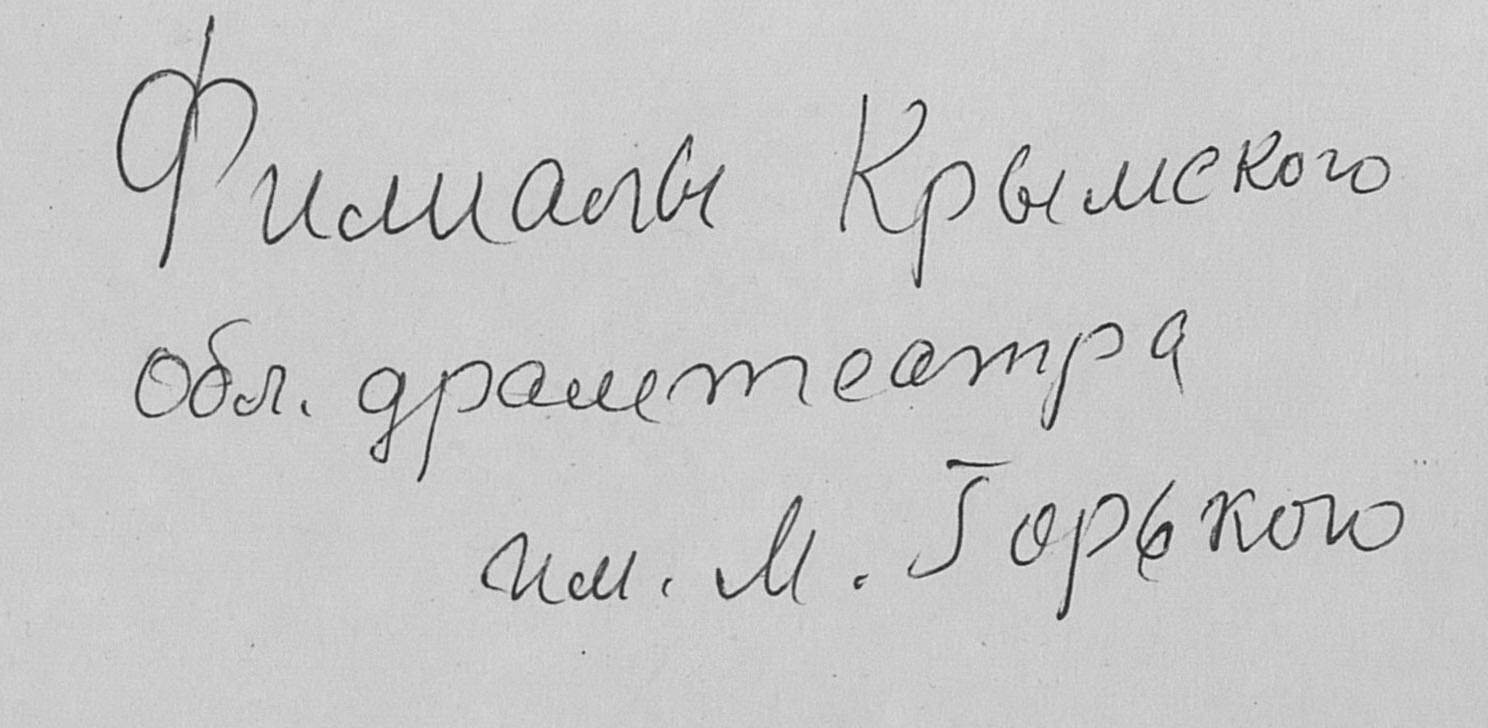 Филиалы Крымского
обл. драмтеатра
им. М. Горького